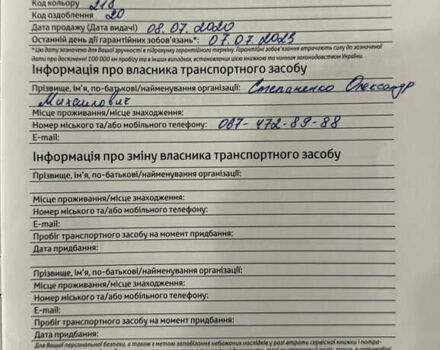 Код кольору 218
Код оздоблення 20
Дата продажу (Дата видачі) 08.07.2020
Останній день дії гарантійних зобов'язань*: 07.07.2023
*Цю дату зазначено для Вашої зручності в підрахунку гарантійного терміну. Гарантійні зобов'язання втрачають силу до зазначеної
дати при досягненні 100 000 км пробігу та в інших випадках, встановлених цією книжкою та чинним законодавством України.
Інформація про власника транспортного засобу
Прізвище, ім'я, по-батькові/найменування організації: Степаненко Олександр
Михайлович
Місце проживання/місце знаходження:
Номер міського та/або мобільного телефону: 067-472-89-88
E-mail:
Інформація про зміну власника транспортного засобу
Прізвище, ім'я, по-батькові/найменування організації:
Місце проживання/місце знаходження:
Номер міського та/або мобільного телефону:
E-mail:
Пробіг транспортного засобу на момент придбання:
Дата придбання:
Прізвище, ім'я, по-батькові/найменування організації:
Місце проживання/місце знаходження:
Номер міського та/або мобільного телефону:
E-mail:
Пробіг транспортного засобу на момент придбання:
Дата придбання:
Для Вашої персональної безпеки, а також з метою запобігання небажаних наслідків у разі втрати сервісної книжки і потра-